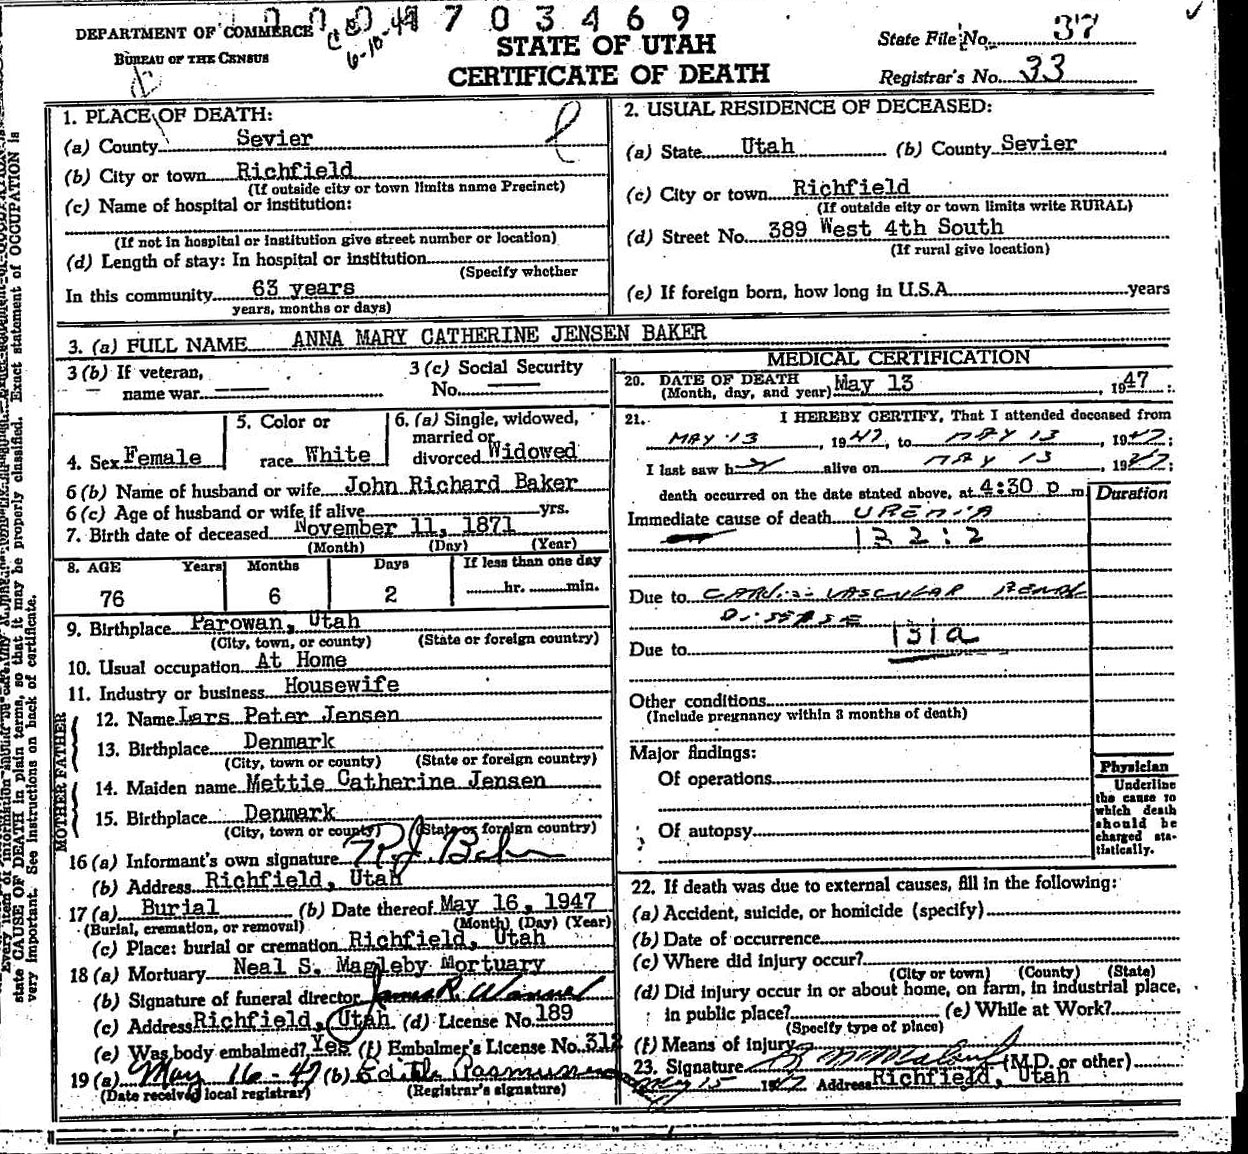 0 0 0 4 7 0 3 4 6 9
DEPARTMENT OF COMMERCE
BUREAU OF THE CENSUS
6-10-47
STATE OF UTAH
CERTIFICATE OF DEATH
State File No. 37
Registrar's No. 33
Every item of information should be
state CAUSE OF DEATH in plain terms, so that it may be properly classified. Exact statement of OCCUPATION is
very important. See instructions on back of certificate.
1. PLACE OF DEATH:
(a) County Sevier
(b) City or town Richfield
(If outside city or town limits name Precinct)
(c) Name of hospital or institution:
(If not in hospital or institution give street number or location)
(d) Length of stay: In hospital or institution
(Specify whether
In this community 63 years
years, months or days)
2. USUAL RESIDENCE OF DECEASED:
(a) State Utah (b) County Sevier
(c) City or town Richfield
(If outside city or town limits write RURAL)
(d) Street No. 389 West 4th South
(If rural give location)
(e) If foreign born, how long in U.S.A. years
3. (a) FULL NAME ANNA MARY CATHERINE JENSEN BAKER
3 (b) If veteran,
name war
3 (c) Social Security
No.
4. Sex Female
5. Color or
race White
6. (a) Single, widowed,
married or
divorced Widowed
6 (b) Name of husband or wife John Richard Baker
6 (c) Age of husband or wife if alive yrs.
7. Birth date of deceased November 11, 1871
(Month) (Day) (Year)
8. AGE Years Months Days If less than one day
76 6 2 hr. min.
9. Birthplace Parowan, Utah
(City, town, or county) (State or foreign country)
10. Usual occupation At Home
11. Industry or business Housewife
FATHER
12. Name Lars Peter Jensen
13. Birthplace Denmark
(City, town or county) (State or foreign country)
MOTHER
14. Maiden name Mettie Catherine Jensen
15. Birthplace Denmark
(City, town or county) (State or foreign country)
16 (a) Informant's own signature R.J. Baker
(b) Address Richfield, Utah
17 (a) Burial (b) Date thereof May 16, 1947
(Burial, cremation, or removal) (Month) (Day) (Year)
(c) Place: burial or cremation Richfield, Utah
18 (a) Mortuary Neal S. Magleby Mortuary
(b) Signature of funeral director James R.
(c) Address Richfield, Utah (d) License No. 189
(e) Was body embalmed? Yes (f) Embalmer's License No. 312
19 (a) May 16-47 (b) Edith Rasmussen
(Date received local registrar) (Registrar's signature)
MEDICAL CERTIFICATION
20. DATE OF DEATH
(Month, day, and year) May 13, 1947
21. I HEREBY CERTIFY, That I attended deceased from
MAY 13, 1947, to MAY 13, 1947;
I last saw her alive on MAY 13, 1947;
death occurred on the date stated above, at 4:30 p m.
Duration
Immediate cause of death UREMIA
132:2
Due to CARDIO-VASCULAR RENAL
DISEASE
131a
Due to
Other conditions
(Include pregnancy within 3 months of death)
Major findings:
Of operations
Of autopsy
Physician
Underline
the cause to
which death
should be
charged sta-
tistically.
22. If death was due to external causes, fill in the following:
(a) Accident, suicide, or homicide (specify)
(b) Date of occurrence
(c) Where did injury occur?
(City or town) (County) (State)
(d) Did injury occur in or about home, on farm, in industrial place,
in public place? (e) While at Work?
(Specify type of place)
(f) Means of injury
23. Signature (M.D. or other)
May 15 1947 Address Richfield, Utah